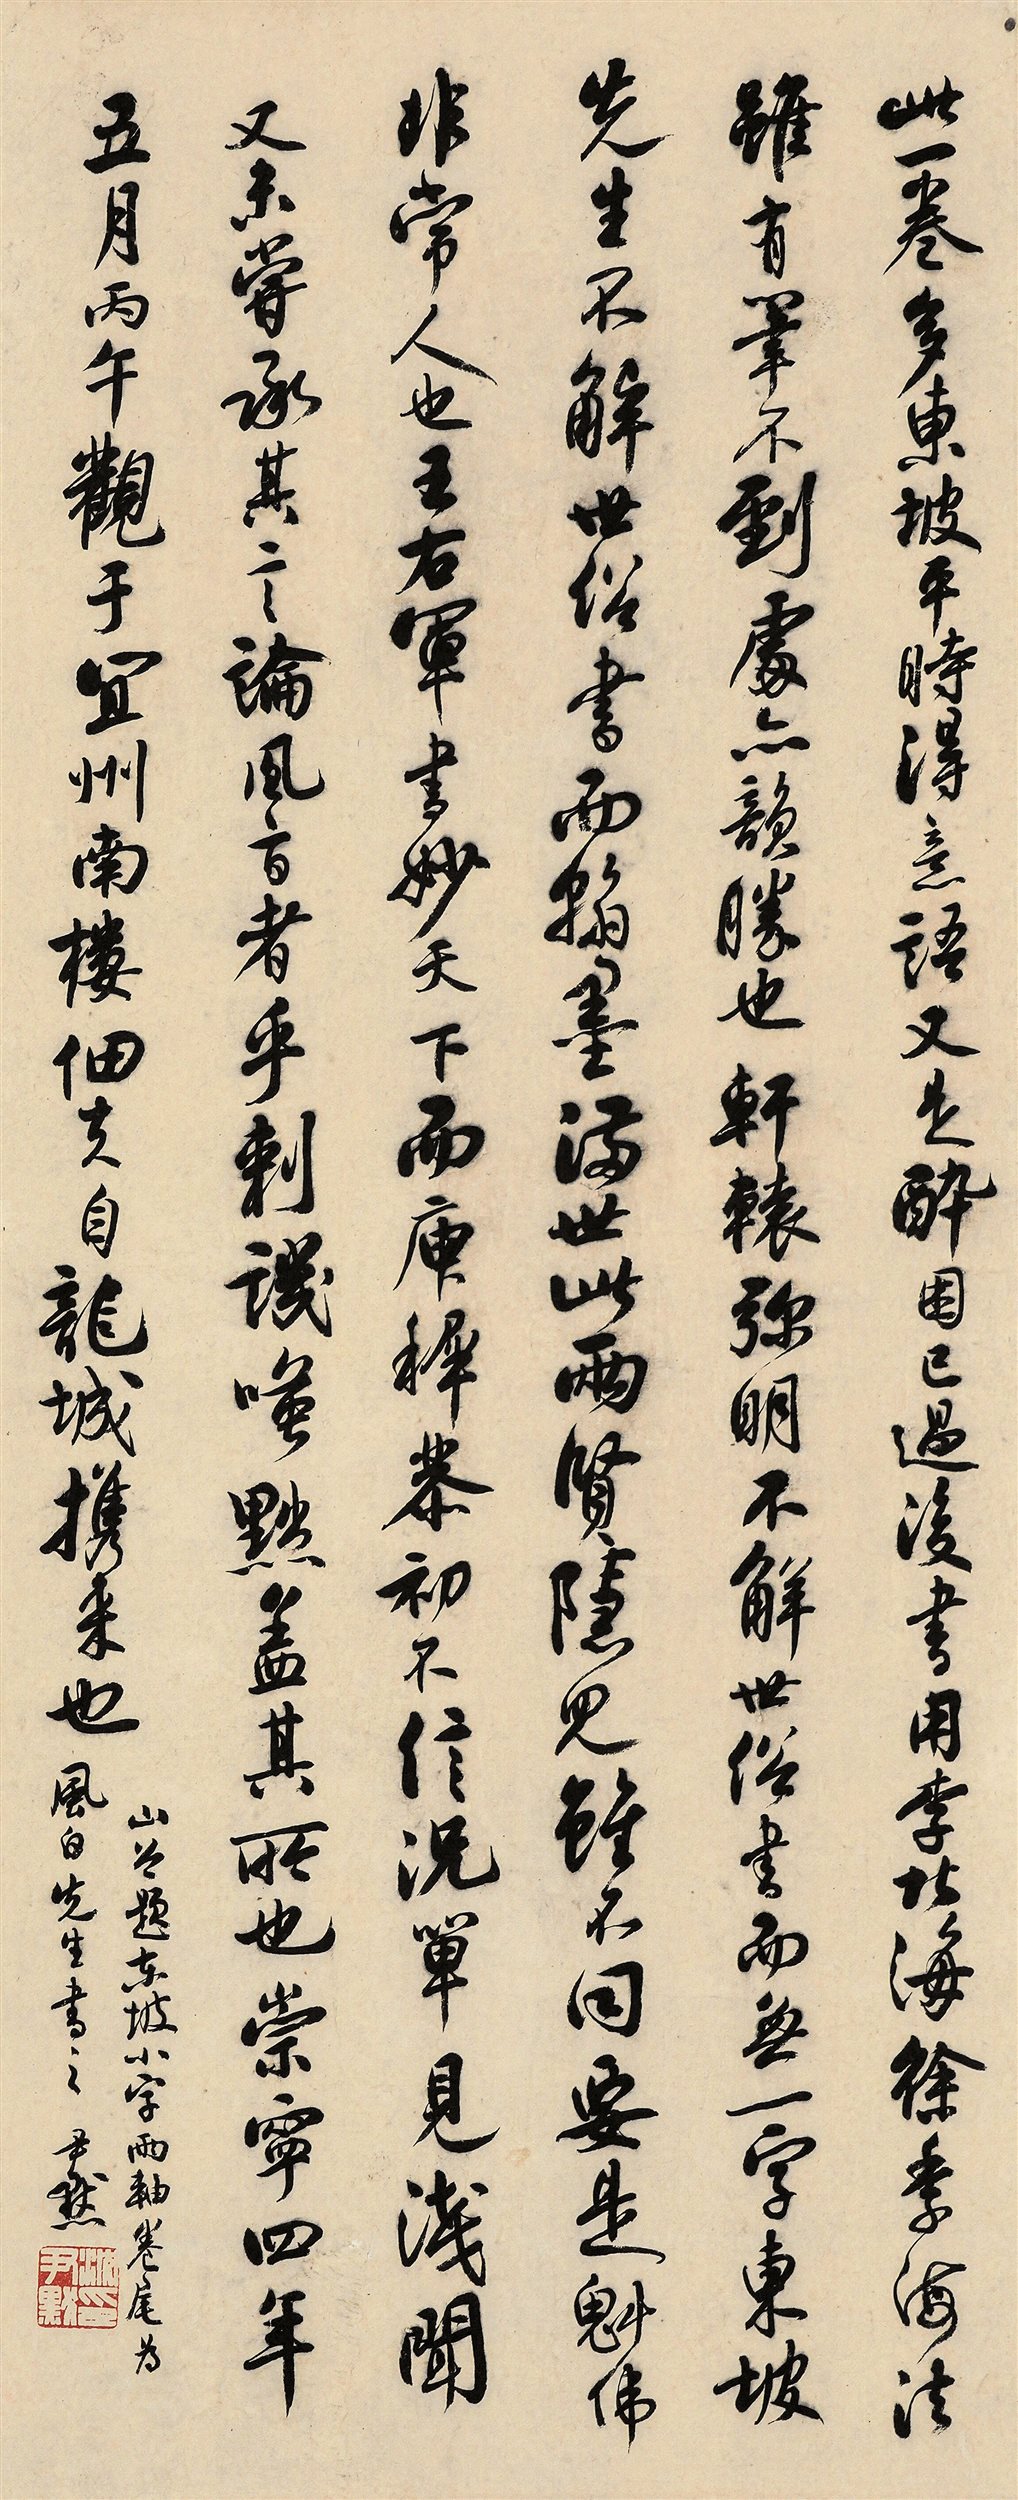 此一卷多東坡平時得意語又是醉困已過後書用李北海徐季海法
雖有筆不到處亦韻勝也軒轅弥明不解世俗書而無一字東坡
先生不解世俗書而翰墨滿世此兩賢隱見雖不同要是魁偉
非常人也王右軍書妙天下而庾穉恭初不信況單見淺聞
又未嘗承其言論風旨者乎刺譏嗤點蓋其所也崇寧四年
五月丙午觀于宜州南樓佃夫自龍城携來也
山谷題東坡小字兩軸卷尾為
風白先生書之 尹默
沈尹默印